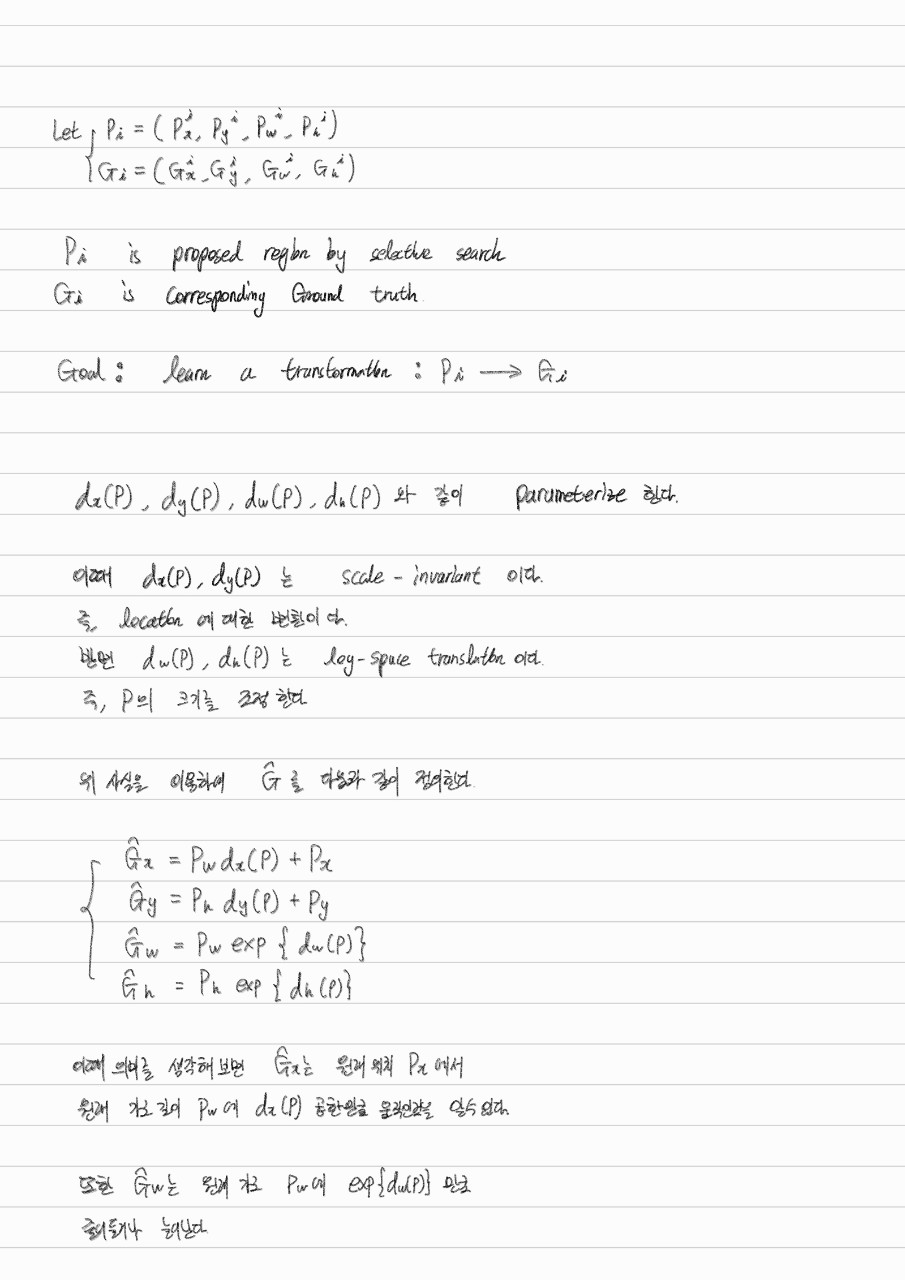 Let { P_i = ( P_x^i, P_y^i, P_w^i, P_h^i )
G_i = ( G_x^i, G_y^i, G_w^i, G_h^i )
P_i is proposed region by selective search
G_i is corresponding Ground truth.
Goal : learn a transformation : P_i ⟶ G_i
d_x(P), d_y(P), d_w(P), d_h(P) 와 같이 parameterize 한다.
이때 d_x(P), d_y(P) 는 scale-invariant 이다.
즉, location 에 대한 변환이다.
반면 d_w(P), d_h(P) 는 log-space translation 이다.
즉, P의 크기를 조정 한다
위 사실을 이용하여 Ĝ 를 다음과 같이 정의한다.
{ Ĝ_x = P_w d_x(P) + P_x
Ĝ_y = P_h d_y(P) + P_y
Ĝ_w = P_w exp { d_w(P) }
Ĝ_h = P_h exp { d_h(P) }
이때 의미를 생각해 보면 Ĝ_x는 원래 위치 P_x 에서
원래 가로 길이 P_w 에 d_x(P) 곱한만큼 움직인값을 알수있다.
또한 Ĝ_w는 원래 가로 P_w에 exp{d_w(P)} 만큼
줄어들거나 늘어난다.